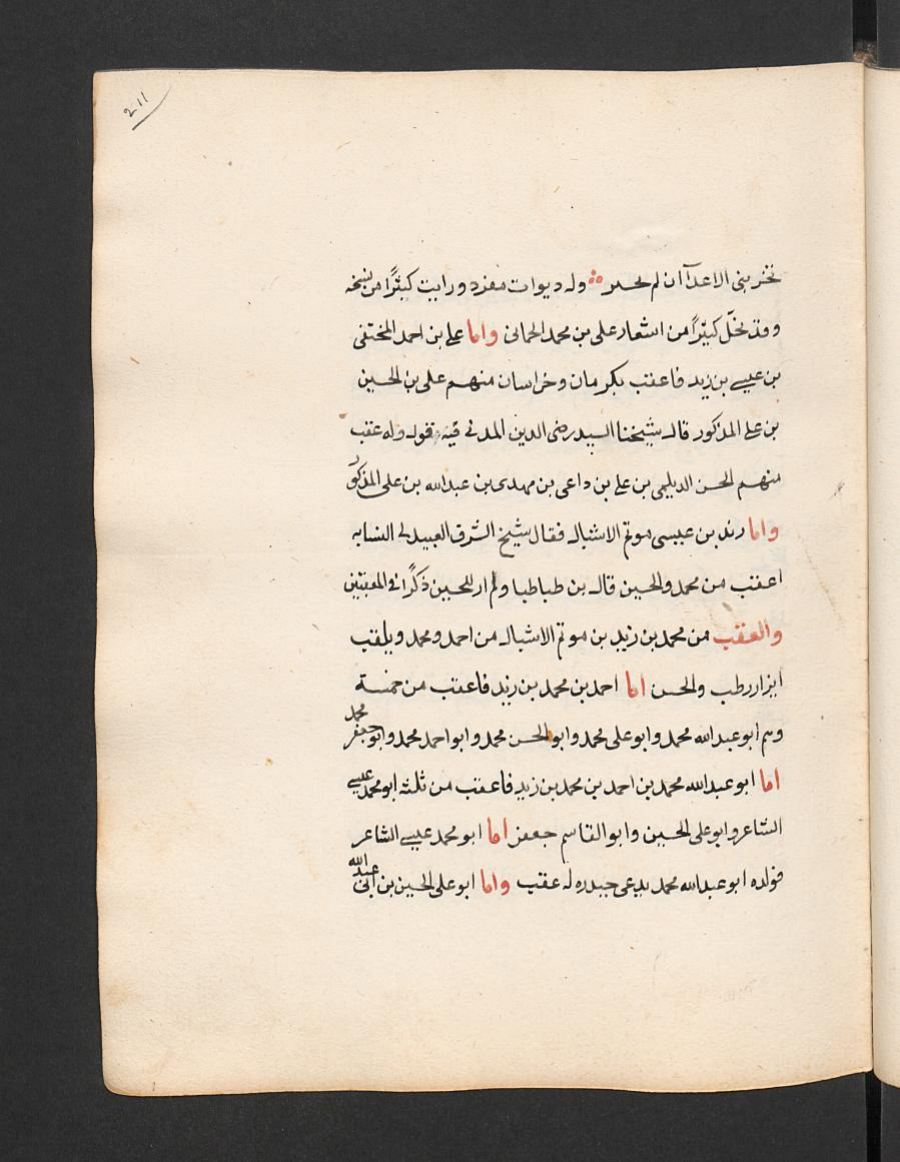 211
تخبر بنى الاعدآ ان لم وله ديوان مفرد ورايت كثيرًا من نسخه
وقد نحل كثيرًا من اشعار على بن محمد الحمانى واما على بن احمد المختفى
بن عيسى بن زيد فاعقب بكرمان وخراسان منهم على بن الحسين
بن على المذكور قال شيخنا السيد رضى الدين المدنى فيه وله عقب
منهم الحسن الديلمى بن على بن داعى بن مهدى بن عبدالله بن على المذكور
واما زيد بن عيسى موتم الاشبال فقال شيخ الشرف العبيدلى النسابه
اعقب من محمد والحسين قال بن طباطبا ولم ار للحسين ذكرًا فى المعقبين
والعقب من محمد بن زيد بن موتم الاشبال من احمد ومحمد ويلقب
ابزار رطب والحسن اما احمد بن محمد بن زيد فاعقب من خمسة
وهم ابو عبدالله محمد وابو على محمد وابو الحسن محمد وابو احمد محمد وابو جعفر محمد
اما ابو عبدالله محمد بن احمد بن محمد بن زيد فاعقب من ثلثه ابو محمد عيسى
الشاعر وابو على الحسين وابو القاسم جعفر اما ابو محمد عيسى الشاعر
فولده ابو عبدالله محمد يدعى حيدره له عقب واما ابو على الحسين بن ابى عبدالله